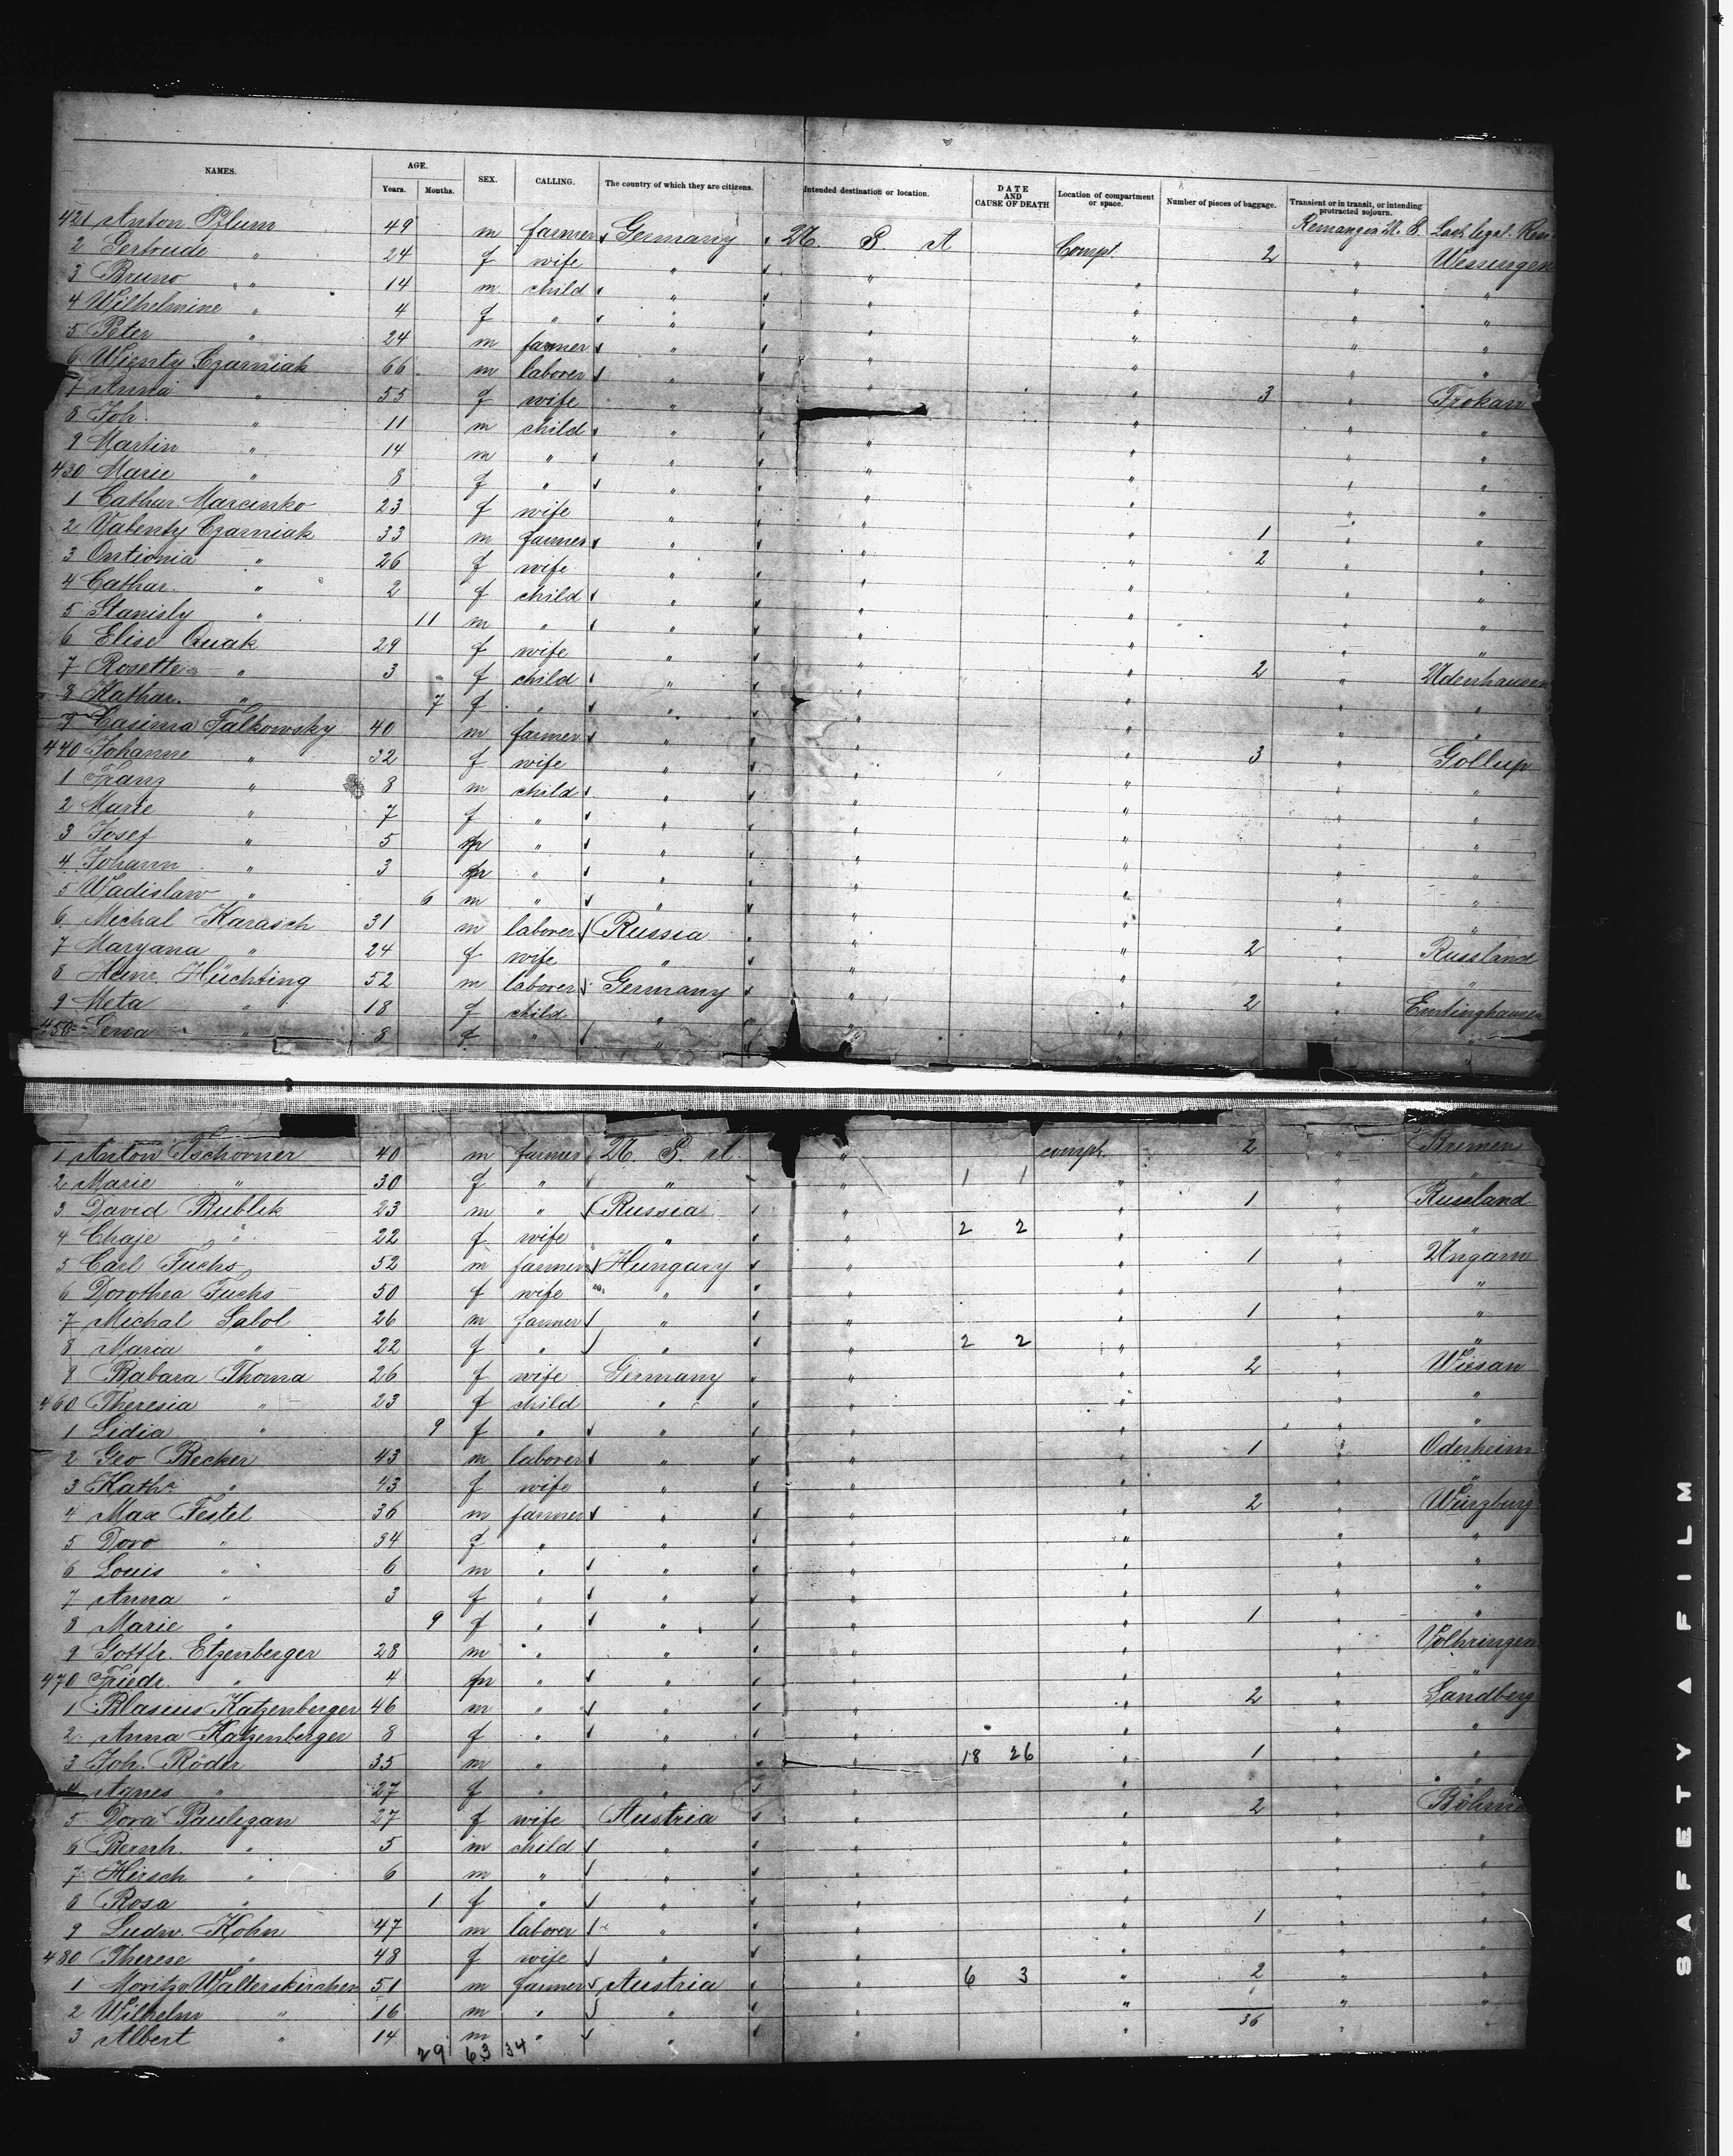 NAMES. AGE. Years. Months. SEX. CALLING. The country of which they are citizens. Intended destination or location. DATE AND CAUSE OF DEATH Location of compartment or space. Number of pieces of baggage. Transient or in transit, or intending protracted sojourn.
Remang in U. S. Last legal. Res.
421 Anton Pflum 49 m farmer Germany U. S. A Compt. 2 " Wessingen
2 Gertrude " 24 f wife " " " " "
3 Bruno " 14 m child " " " " "
4 Wilhelmine " 4 f " " " " " "
5 Peter " 24 m farmer " " " " "
6 Wienty Czarniak 66 m laborer " " " 3 " Trokan
7 Anna " 55 f wife " " " " "
8 Joh. " 11 m child " " " " "
9 Martin " 14 m " " " " " "
430 Marie " 8 f " " " " " "
1 Cathar. Marcinko 23 f wife " " " 1 " "
2 Valenty Czarniak 33 m farmer " " " 2 " "
3 Ontionia " 26 f wife " " " " "
4 Cathar. " 2 f child " " " " "
5 Stanisly " 11 m " " " " " "
6 Elise Quak 29 f wife " " " 2 " Udenhausen
7 Rosette " 3 f child " " " " "
8 Kathar. " 7 f " " " " " "
9 Casima Falkowsky 40 m farmer " " " 3 " Gollup
440 Johanne " 32 f wife " " " " "
1 Franz " 8 m child " " " " "
2 Marie " 7 f " " " " " "
3 Josef " 5 m " " " " " "
4 Johann " 3 m " " " " " "
5 Wadislaw " 6 m " " " " " "
6 Michal Karasch 31 m laborer Russia " " 2 " Russland
7 Maryana " 24 f wife " " " " "
8 Heinr. Hüchting 52 m laborer Germany " " 2 " Emtinghausen
9 Meta " 18 f child " " " " "
450 Lena " 8 f " " " "
1 Anton Tschovner 40 m farmer U. S. A. " compt. 2 " Bremen
2 Marie " 30 f " " " 1 1 " " "
3 David Bublik 23 m " Russia " " 1 " Russland
4 Chaje " 22 f wife " " 2 2 " " "
5 Carl Fuchs 52 m farmer Hungary " " 1 " Ungarn
6 Dorothea Fuchs 50 f wife " " " " "
7 Michal Sabol 26 m farmer " " " 1 " "
8 Maria " 22 f " " " 2 2 " " "
9 Babara Thoma 26 f wife Germany " " 2 " Wiesan
460 Theresia " 23 f child " " " " "
1 Lidia " 9 f " " " " " "
2 Geo Becker 43 m laborer " " " 1 " Oderheim
3 Kath. " 43 f wife " " " " "
4 Max Festel 36 m farmer " " " 2 " Würzburg
5 Doro " 34 f " " " " " "
6 Louis " 6 m " " " " " "
7 Anna " 3 f " " " " " "
8 Marie " 9 f " " " " 1 " "
9 Gottfr. Etzenberger 28 m " " " " " Volhringen
470 Friedr. " 4 m " " " " " "
1 Blasius Katzenberger 46 m " " " " 2 " Sandberg
2 Anna Katzenberger 8 f " " " " " "
3 Joh. Röder 35 m " " " 18 26 " 1 " "
4 Agnes " 27 f " " " " " "
5 Dora Pauligan 27 f wife Austria " " 2 " Böhme
6 Bernh. " 5 m child " " " " "
7 Hirsch " 6 m " " " " " "
8 Rosa " 1 f " " " " " "
9 Ludw. Kohn 47 m laborer " " " 1 " "
480 Therese " 48 f wife " " " " "
1 Moritz Walterskirchen 51 m farmer Austria " 6 3 " 2 " "
2 Wilhelm " 16 m " " " " " "
3 Albert " 14 m " " " " 36 " "
29 63 34
SAFETY A FILM